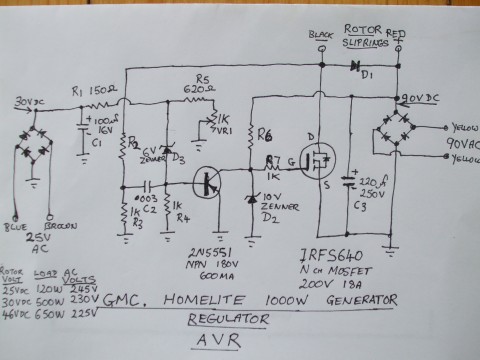 BLACK
ROTOR
SLIPRINGS
RED
-
+
D1
30VDC
R1 150Ω
R5
620Ω
+ 100µF
16V
C1
1K
VR1
90VDC
R2
6V
ZENNER
D3
R6
R7
1K
G
D
S
YELLOW
90VAC
YELLOW
•003
C2
1K
R3
1K
R4
10V
ZENNER
D2
+
220µF
250V
C3
BLUE
BROWN
25V
AC
2N5551
NPN 180V
600MA
IRFS640
N CH MOSFET
200V 18A
ROTOR LOAD AC
VOLT VOLTS
25VDC 120W 245V
30VDC 500W 230V
46VDC 650W 225V
GMC. HOMELITE 1000W GENERATOR
REGULATOR
AVR